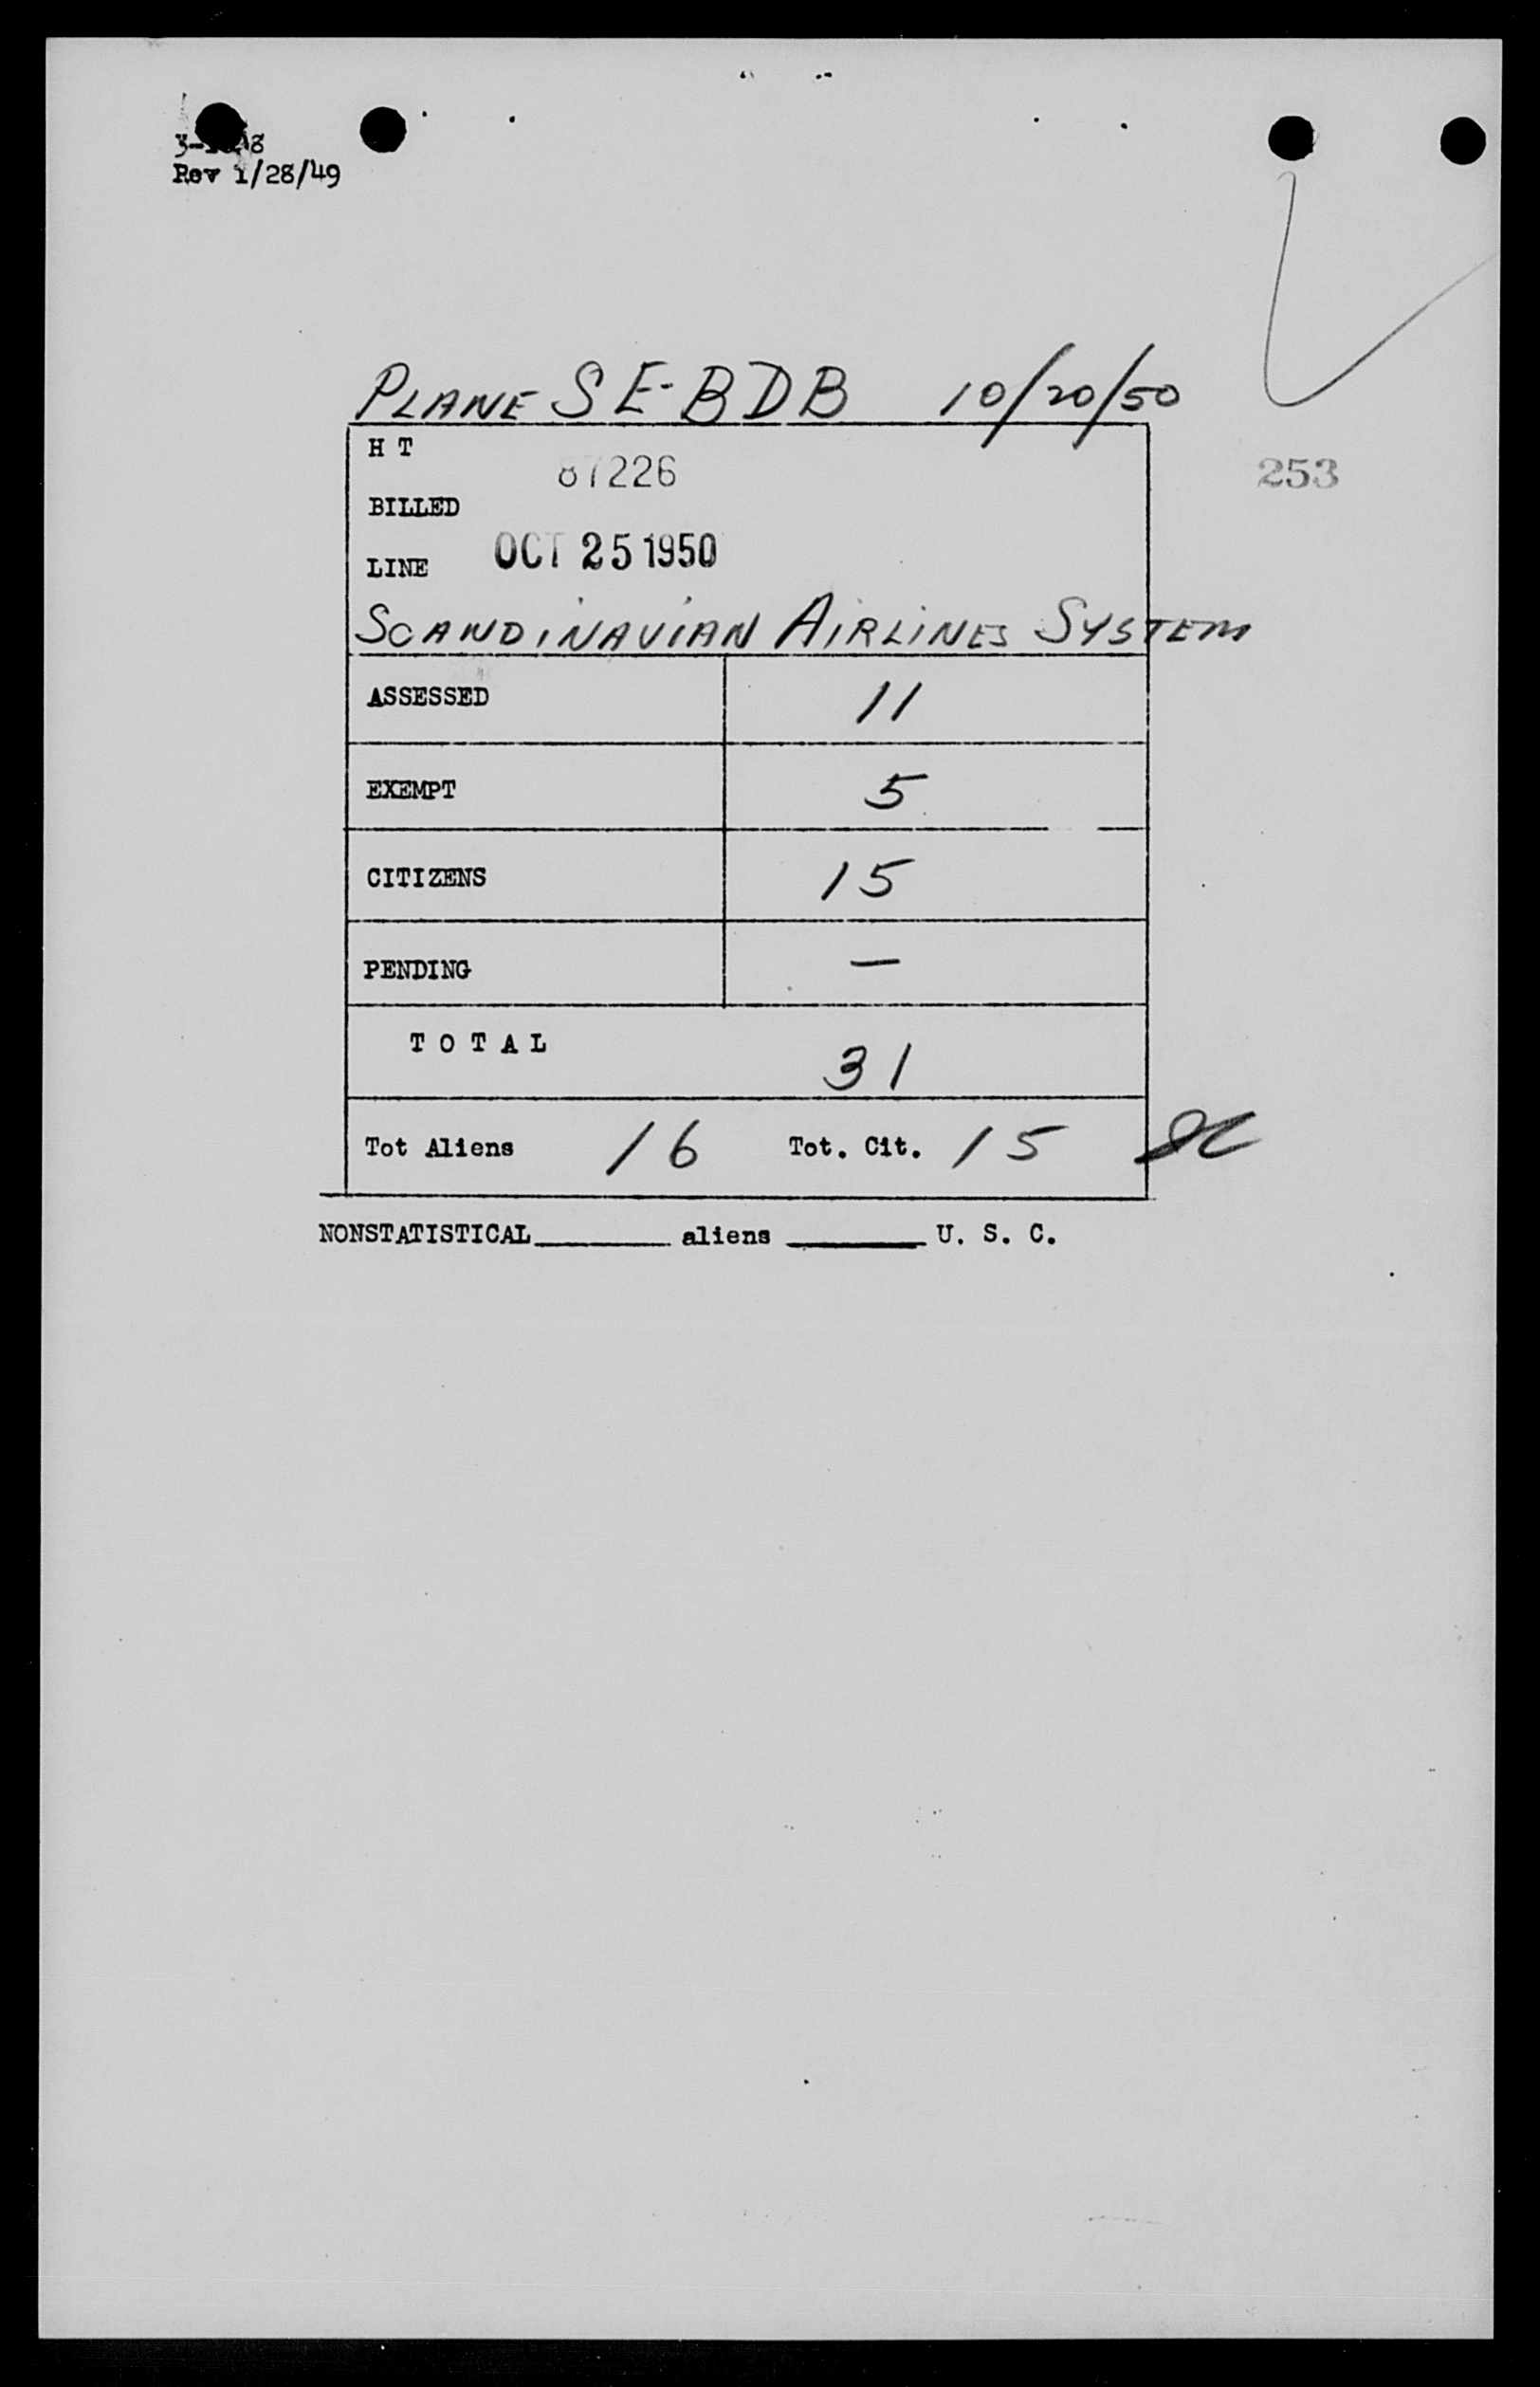 Rev 1/28/49
PLANE SE-BDB 10/20/50
H T
87226
253
BILLED
OCT 25 1950
LINE
SCANDINAVIAN AIRLINES SYSTEM
ASSESSED 11
EXEMPT 5
CITIZENS 15
PENDING —
TOTAL 31
Tot Aliens 16 Tot. Cit. 15
NONSTATISTICAL________ aliens ________ U. S. C.